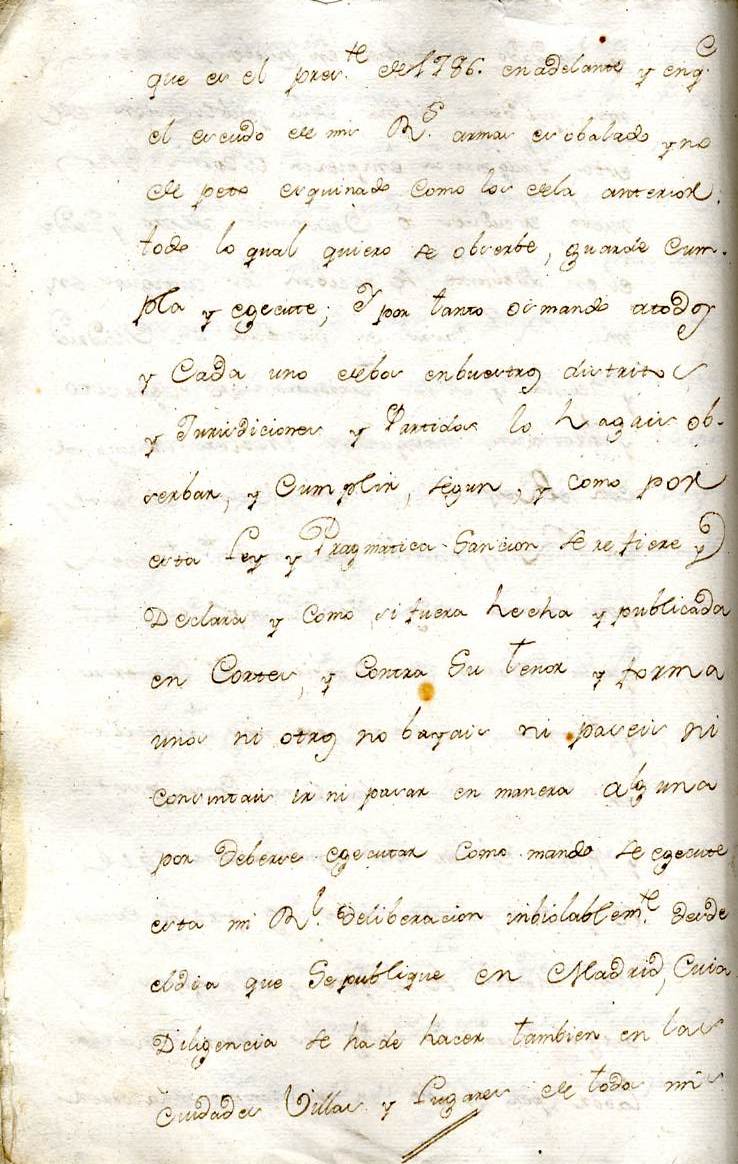 que es el pres.te de 1786. en adelante y en q.e
el escudo de mis R.s armas es obalado y no
de peto esquinado como los dela anterior:
todo lo qual quiero se obserbe, guarde cum-
pla y egecute; Y por tanto os mando atodos
y Cada uno debos enbuestros distritos
y Jurisdiciones y Partidos lo hagais ob-
serbar, y Cumplir, segun, y como por
esta Ley y Pragmatica Sancion se refiere y
Declara y como si fuera hecha y publicada
en Cortes, y Contra Su tenor y forma
unos ni otros no bayais ni paseis ni
consintais ir ni pasar en manera alguna
por Deberse egecutar como mando se egecute
esta mi R.l Deliberacion inbiolablem.te desde
eldia que Se publique en Madrid, Cuia
Diligencia se ha de hacer tambien en las
Ciudades Villas y Lugares de todos mis